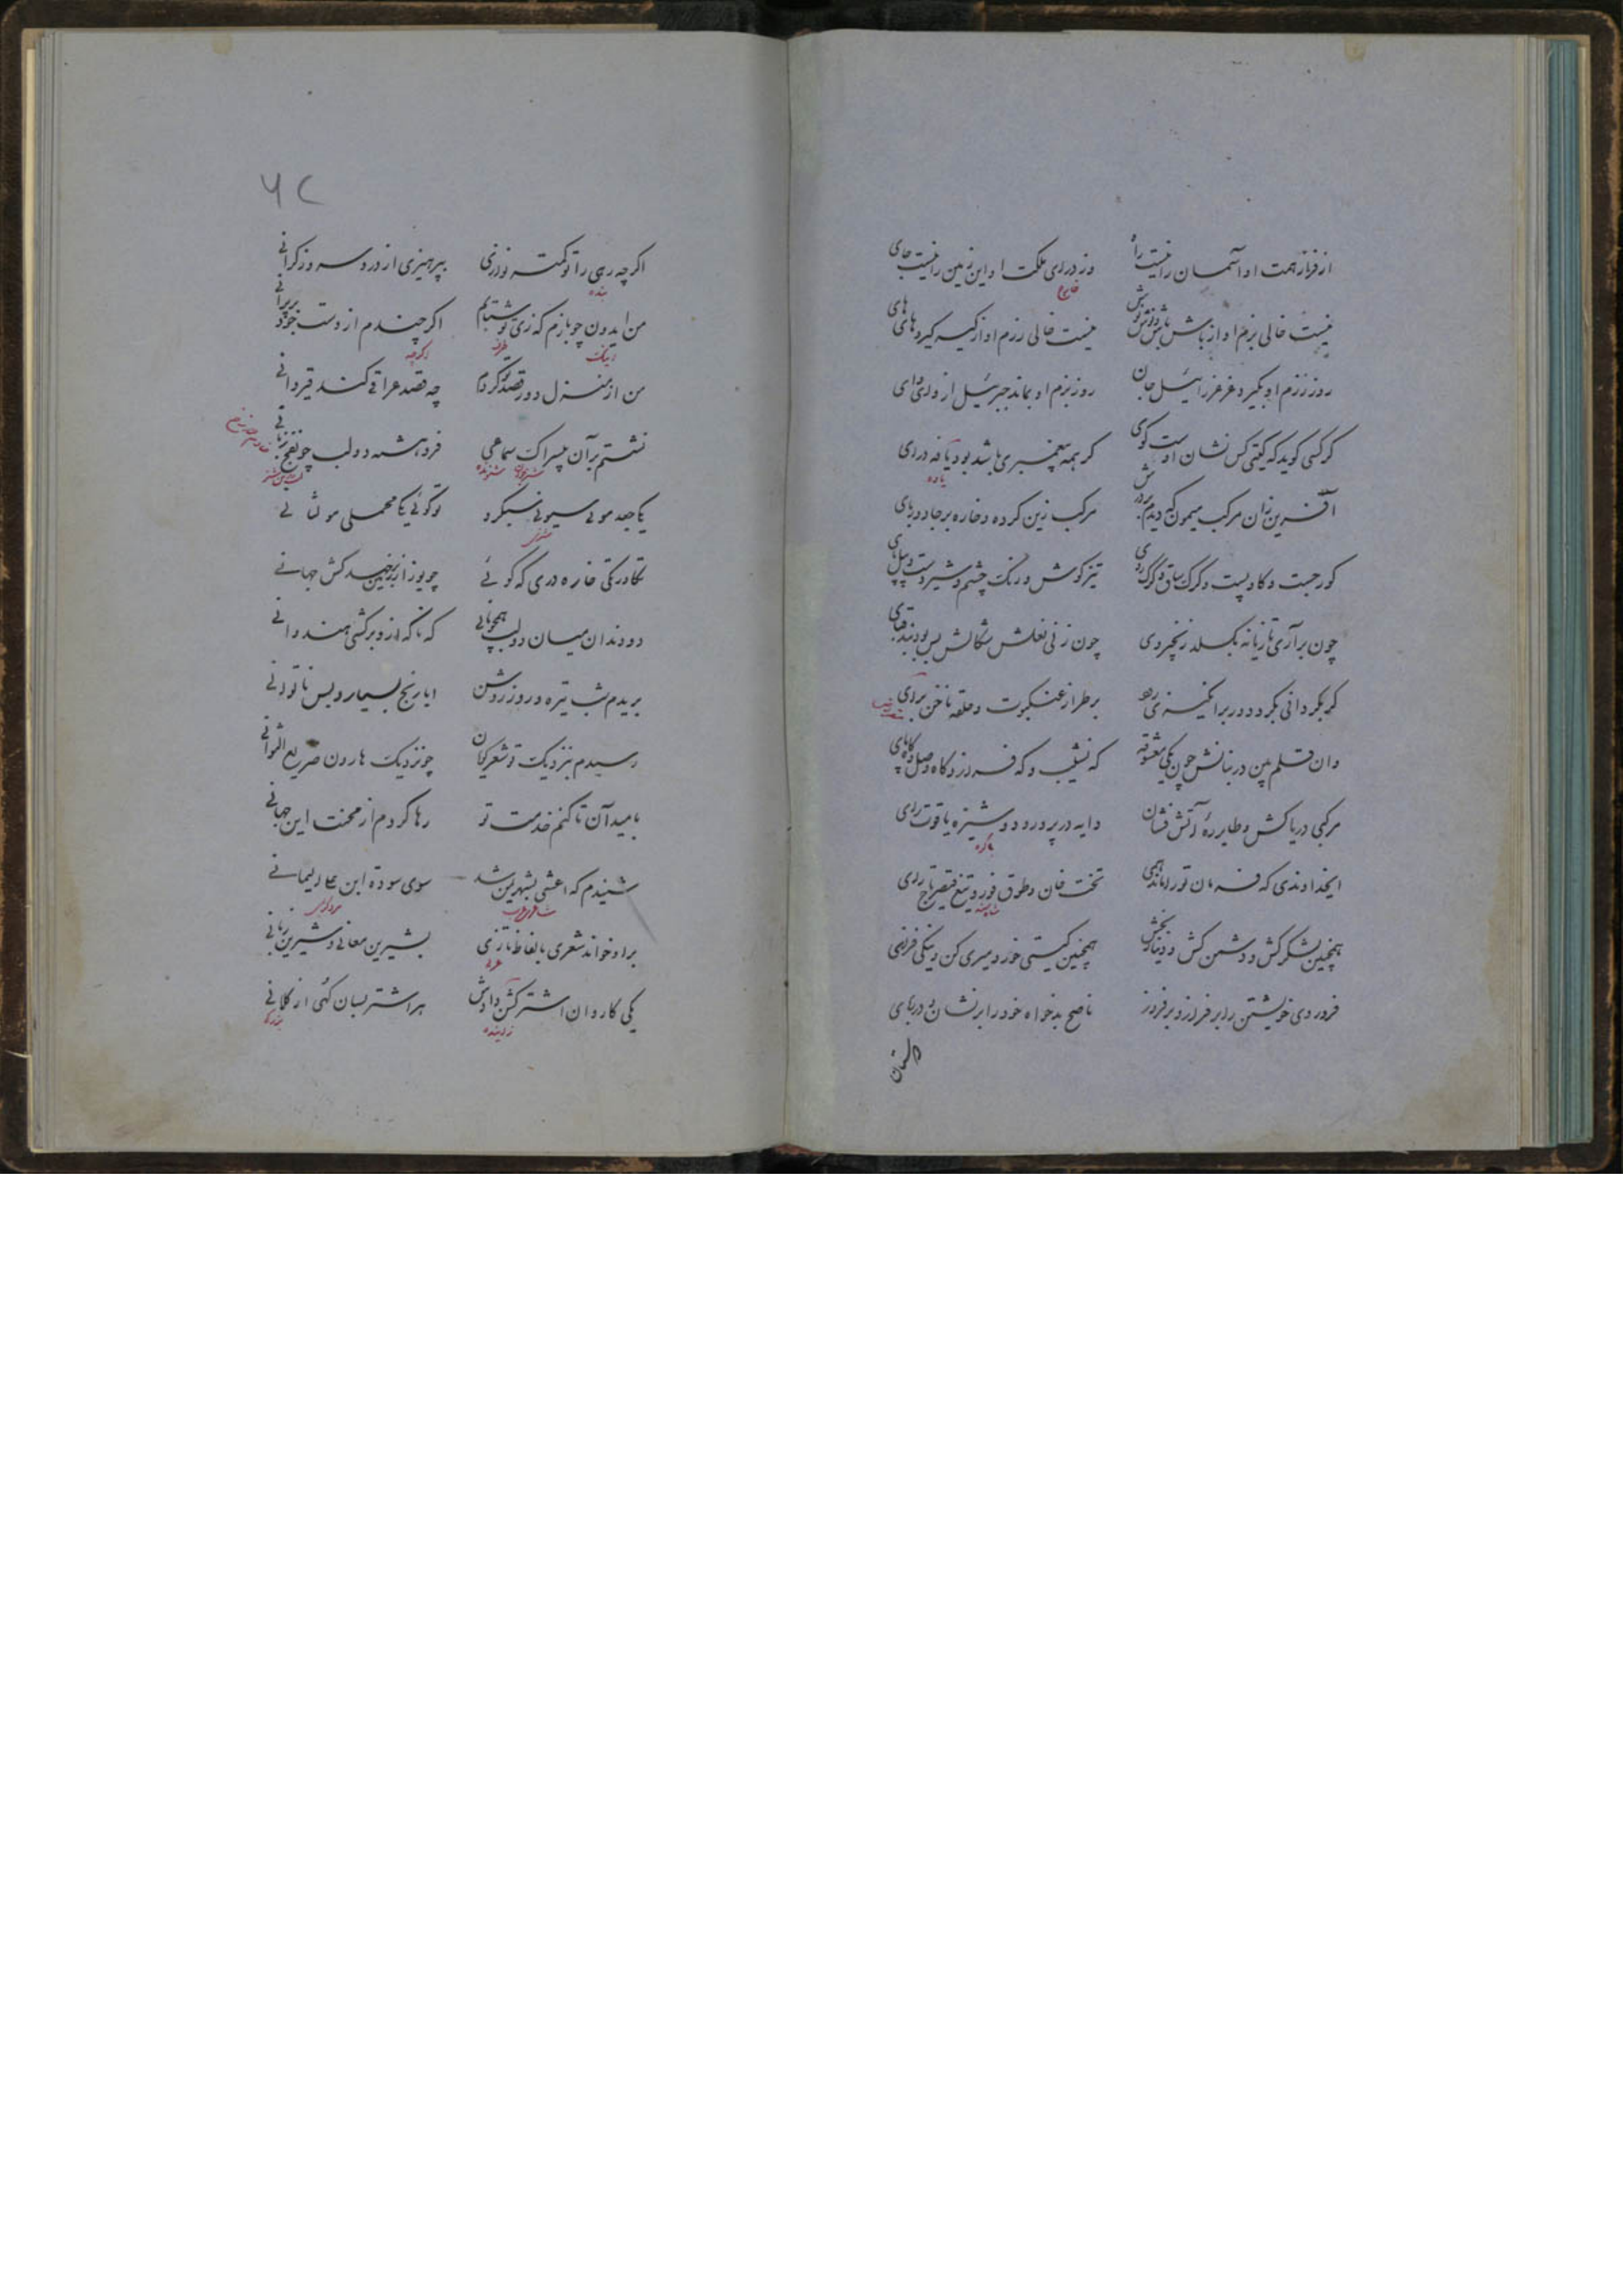 از فراز همت او آسمان را نیست راه وز درای ملکت او این زمین را نیست جای
نیست خالی بزم او از باش باش و نوش نوش نیست خالی رزم او از گیر گیر و های های
روز رزم او بگیرد عزرائیل جان روز بزم او بماند جبرئیل از وای وای
گر کسی گوید که گیتی کس نشان اوست گوی گر همه پیغمبری باشد بود یافه درای
یاوه
آفرین زان مرکب میمون که دیدم بر درش مرکب زین کرده و خاره بر جادو ربای
گور جست و گاو پشت و کرگ ساق و گرگ روی تیز گوش و رنگ چشم و شیر دست و پیل پای
چون برآری تازیانه بگسلد زنجیر وی چون زنی نعلش شکالش بس بود بند قبای
گر بگردانی بگردد ور برانگیزی رود بر طراز عنکبوت و حلقه ناخن برای
وان قلم بین در بنانش چون یکی معشوقه که نشیب و که فراز و گاه وصل و گاه پای
مرکبی دریا کش و طایری آتش فشان دایه در پرورد و دوشیزه یاقوت زای
باکره
ایخداوندی که فرمان تو راند همی تخت خان و طوق فور و تیغ قیصر تاج رای
همچنین لشکر کش و دشمن کش و دینار بخش همچنین گیتی خور و میری کن و نیکی فزای
فرودی خویشتن را بر فراز و بر فروز ناصح بدخواه خود را بر نشان و در ربای
۶۲
اگر چه رهی را تو کهتر نوازی بپرهیزی از درد سر وز گرانی
بنده
من ایدون چو بازم که زی تو شتابم اگر چندم از دست خود بر پرانی
اینک طرف اگرچه
من از منزل دور قصد تو کردم چه قصد عراقی کند قیروانی
نشستم بر آن بیسراک سماعی فروهشته دو لب چو لفج زبانی
یکی جعد موئی سیوئی سبکرو تو گوئی یکی محملی مولتانی
تکاور یکی خاره دری که گوئی چو یوز از زمین بر جهد کش جهانی
دو دندان میان دو لب همچو نانی که ناگه از او بر کشی هندوانی
بریدم شب تیره و روز روشن ابا رنج بسیار و بس ناتوانی
رسیدم بنزدیک تو شعر گویان چو نزدیک هارون صریع الغوانی
بامید آن تا کنم خدمت تو رها گردم از محنت این جهانی
شنیدم که اعشی بشهر یمن شد سوی سوده ابن علی الیمانی
شاعر عرب
بر او خواند شعری بالفاظ تازی بشیرین معانی و شیرین زبانی
عربی
یکی کاروان اشتر گشن دادش هر اشتر بسان کهی از کلانی